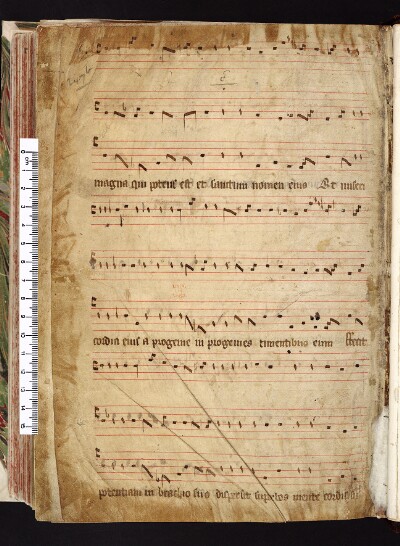 magna qui potens est et sanctum nomen eius Et miseri
cordia eius a progenie in progenies timentibus eum ffecit
potentiam in brachio suo dispersit superbos mente cordis sui